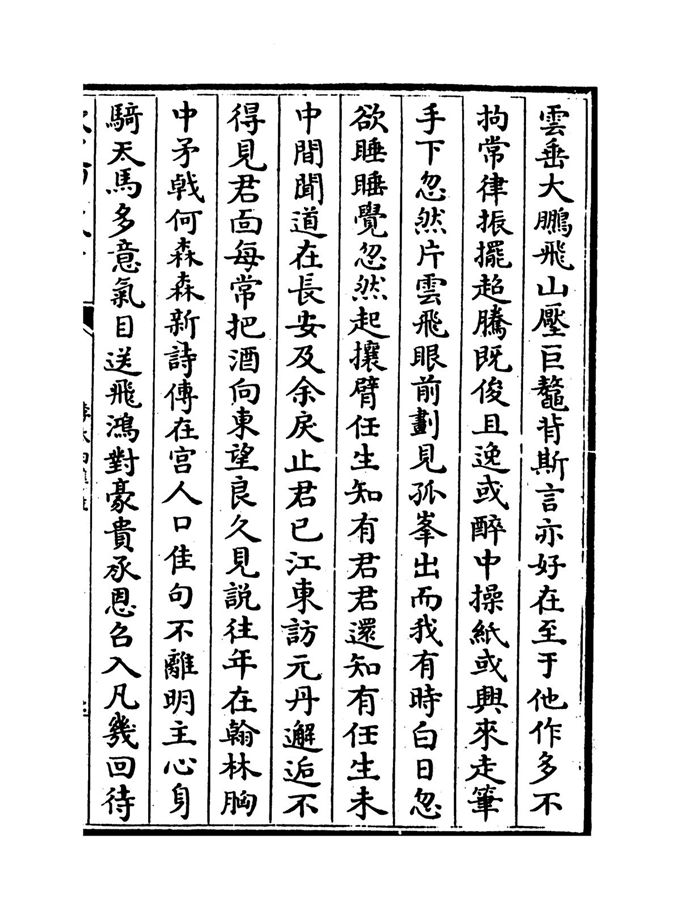 雲垂大鵬飛山壓巨鼇背斯言亦好在至于他作多不
拘常律振擺超騰既俊且逸或醉中操紙或興來走筆
手下忽然片雲飛眼前劃見孤峯出而我有時白日忽
欲睡睡覺忽然起攘臂任生知有君君還知有任生未
中間聞道在長安及余戾止君已江東訪元丹邂逅不
得見君面每常把酒向東望良久見說徃年在翰林胸
中矛戟何森森新詩傳在宫人口佳句不離明主心身
騎天馬多意氣目送飛鴻對豪貴承恩召入凡幾回待